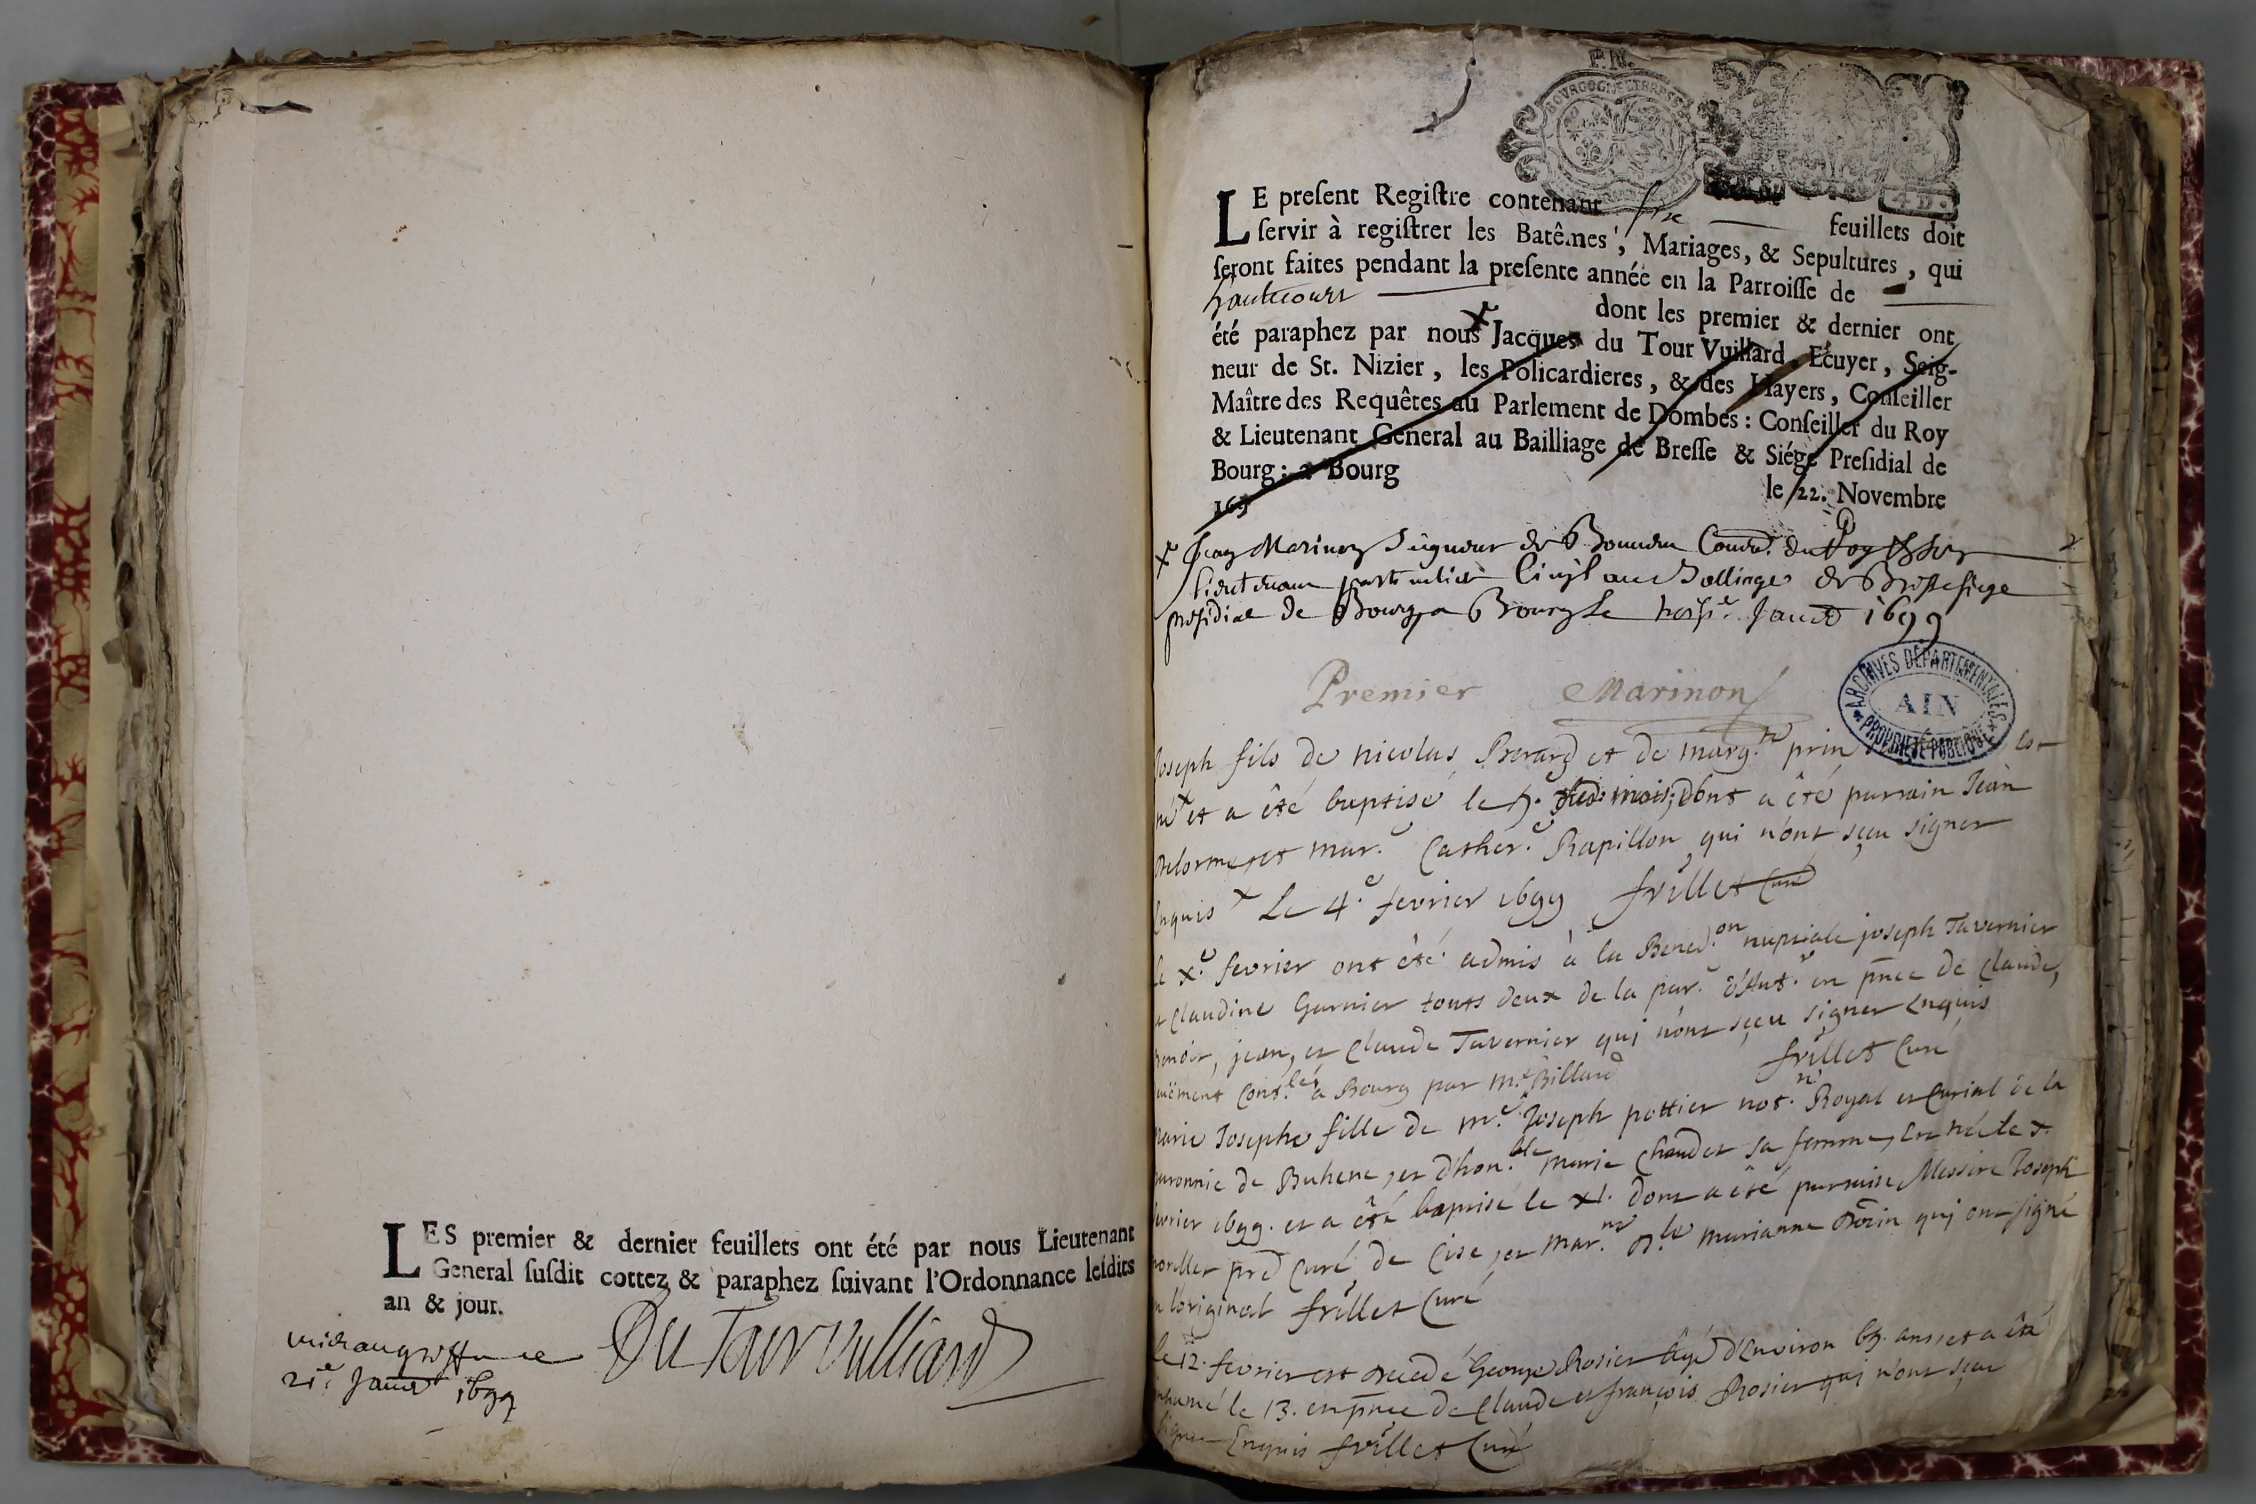 LES premier & dernier feuillets ont été par nous Lieutenant
General susdit cottez & paraphez suivant l'Ordonnance lesdits
an & jour.
21e Janvr 1699
Du Tour Vuillard
BOURGOGNE ET BRESSE
4 D.
LE present Registre contenant six feuillets doit
servir à registrer les Batêmes, Mariages, & Sepultures, qui
seront faites pendant la presente année en la Parroisse de
hautecourt dont les premier & dernier ont
été paraphez par nous Jacques du Tour Vuillard, Ecuyer, Seig-
neur de St. Nizier, les Policardieres, & des Hayers, Conseiller
Maître des Requêtes au Parlement de Dombes: Conseiller du Roy
& Lieutenant General au Bailliage de Bresse & Siége Presidial de
Bourg: a Bourg le 22. Novembre
169
Jean Marinon Seigneur de
Lieutenant particulier Civil au Balliage de Bresse siege
presidial de Bourg a Bourg le Janvr 1699
Premier Marinon
ARCHIVES DÉPARTEMENTALES
AIN
PROPRIÉTÉ PUBLIQUE
Joseph fils de nicolas Berard et de marg.te prin est
né x et a été baptisé le 5. dud. mois, dont a été parrain Jean
Delorme, et mar.e Cather.e Rapillon, qui n'ont sçeu signer
Enquis x Le 4.e fevrier 1699 frillet Curé
Le x.e fevrier ont été admis à la Bened.on nuptiale joseph Tavernier
et Claudine Garnier touts deux de la par.e en pnce de Claude,
jean, et Claude Tavernier qui n'ont sçeu signer Enquis
a Bourg par mr Billard frillet Curé
marie Josephe fille de m.e Joseph pottier not. Royal et Curial de la
baronnie de Buhene, et d'hon.ble marie Chaudet sa femme, est née le x.
fevrier 1699. et a été baptisé le xi. dont a été parrain Messire Joseph
morellet pre Curé de Cise, et mar.ne D.lle marianne qui ont signé
a l'original frillet Curé
Le 12. fevrier est decedé George Rosier âgé d'Environ 65. ans et a été
inhumé le 13. en pnce de Claude et françois Rosier qui n'ont sçeu
signer Enquis frillet Curé